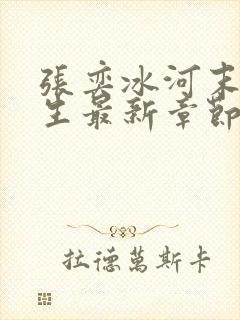 張奕冰河末
生最新章節
拉德萬斯卡